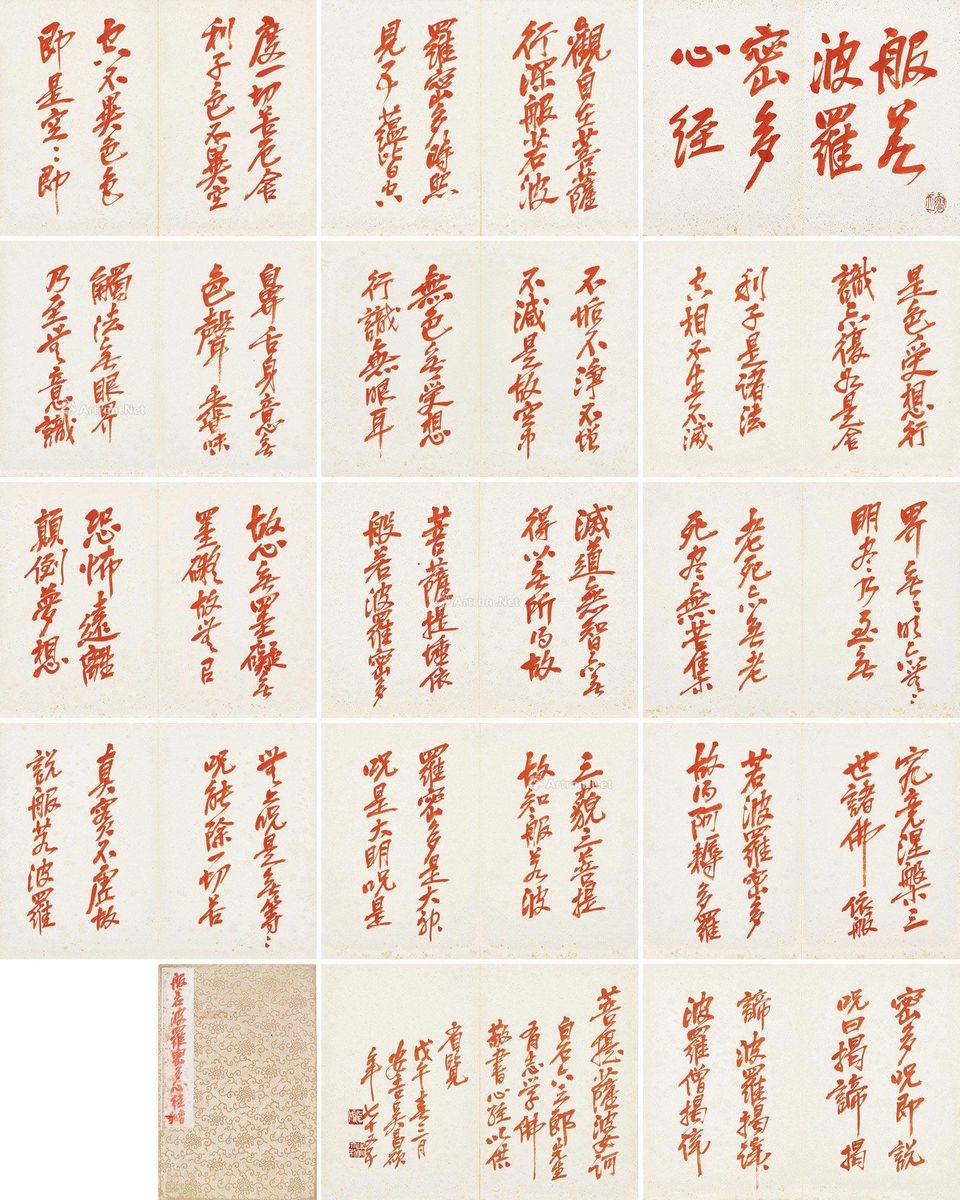 般若
波羅
密多
心经
觀自在菩薩
行深般若波
羅密多時照
見五蘊皆空
度一切苦厄舍
利子色不異空
空不異色色
即是空〻即
是色受想行
識亦復如是舍
利子是諸法
空相不生不滅
不垢不淨不增
不減是故空中
無色無受想
行識無眼耳
鼻舌身意無
色聲香味
觸法無眼界
乃至無意識
界無〻明亦無〻
明盡乃至無
老死亦無老
死盡無苦集
滅道無智亦無
得以無所得故
菩薩提埵依
般若波羅密多
故心無罣礙無
罣礙故無有
恐怖遠離
顛倒夢想
究竟涅槃三
世諸佛依般
若波羅密多
故得阿耨多羅
三藐三菩提
故知般若波
羅密多是大神
呪是大明呪是
無上呪是無等〻
呪能除一切苦
真實不虛故
說般若波羅
密多呪即說
呪曰揭諦揭
諦波羅揭諦
波羅僧揭諦
菩提薩婆訶
白石六三郎
有志學佛
敬書心經以供
省覽
戊午春三月
安吉吳昌碩
年七十五
般若波羅密多心經
Artron.Net
Artron.Net
Artron.Net